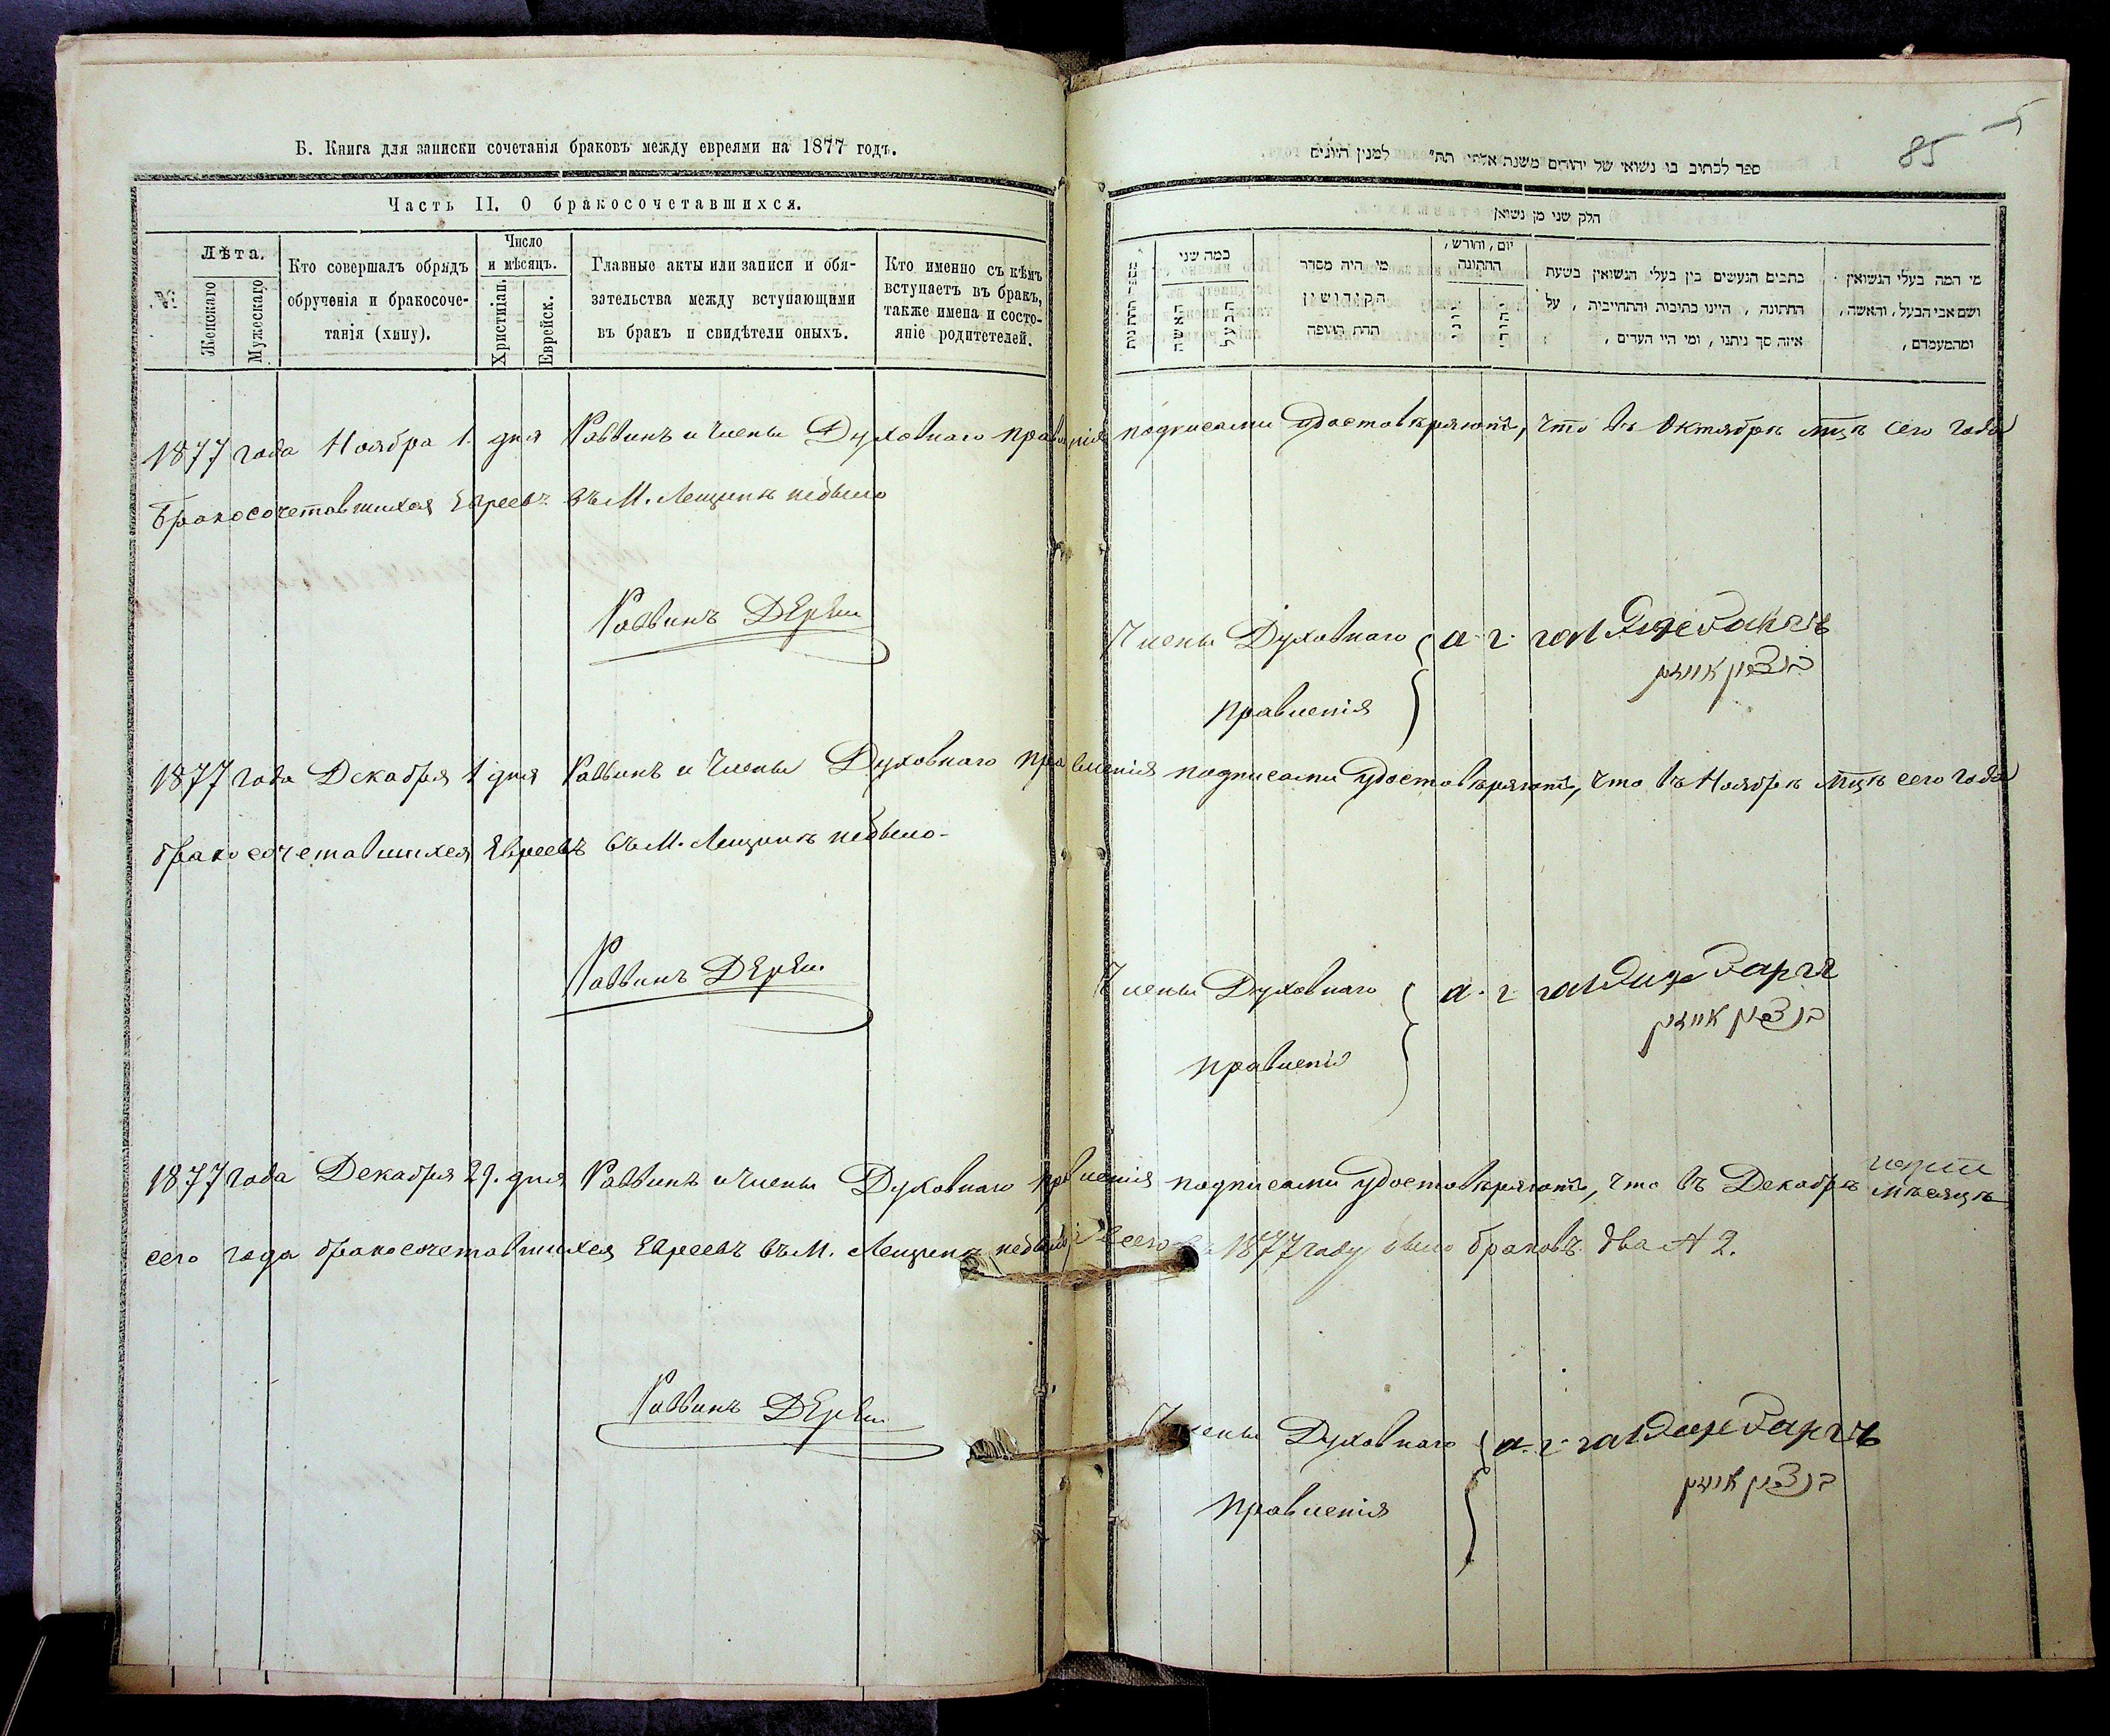 Б. Книга для записки сочетанія браковъ между евреями на 1877 годъ.
Часть II. О бракосочетавшихся.
№
Лѣта.
Женскаго
Мужескаго
Кто совершалъ обрядъ
обрученія и бракосоче-
танія (хипу).
Число
и мѣсяцъ.
Христіан.
Еврейск.
Главные акты или записи и обя-
зательства между вступающими
въ бракъ и свидѣтели оныхъ.
Кто именно съ кѣмъ
вступаетъ въ бракъ,
также имена и состо-
яніе родитетелей.
85
ספר לכתוב בו נשואי של יהודים משנת אלפי תת״ למנין היונים
חלק שני מן נשואין
מספר החתונות
כמה שני
האשה
הבעל
מי היה מסדר
הקידושין
תחת החופה
יום, וחורש,
החתונה
יווני
יהודי
כתבים הנעשים בין בעלי הנשואין בשעת
החתונה, היינו כתיבות והתחייבית, על
איזה סך ניתנו, ומי היו העדים,
מי המה בעלי הנשואין
ושם אבי הבעל, והאשה,
ומהמעמדם,
1877 года Ноября 1. дня Раввинъ и Члены Духовнаго правленія подписами удостовѣряютъ, что въ Октябрѣ мцѣ сего года
бракосочетавшихся Евреевъ въ М. Лещинѣ небыло
Раввинъ
Члены Духовнаго
правленія
1877 года Декабря 1 дня Раввинъ и Члены Духовнаго правленія подписами удостовѣряютъ, что въ Ноябрѣ мцѣ сего года
бракосочетавшихся Евреевъ въ М. Лещинѣ небыло-
Раввинъ
Члены Духовнаго
правленія
1877 года Декабря 29. дня Раввинъ и Члены Духовнаго правленія подписами удостовѣряютъ, что въ Декабрѣ мѣсяцѣ
сего года бракосочетавшихся Евреевъ въ М. Лещинѣ небыло Всего 1877 году было браковъ два № 2.
Раввинъ
Члены Духовнаго
правленія